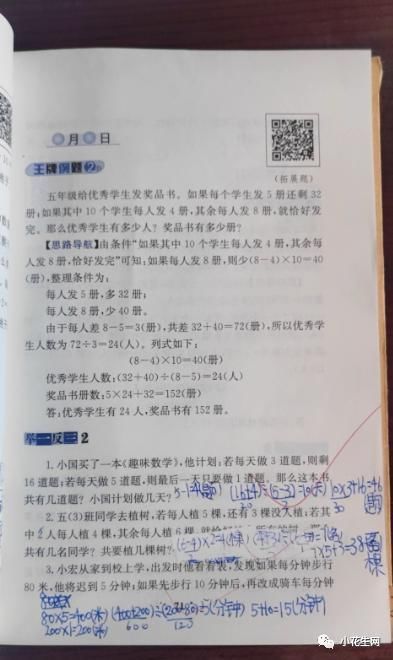 月 日
王牌例题2
(拓展题)
五年级给优秀学生发奖品书。如果每个学生发 5 册还剩 32
册;如果其中 10 个学生每人发 4 册,其余每人发 8 册,就恰好发
完。那么优秀学生有多少人?奖品书有多少册?
【思路导航】由条件“如果其中 10 个学生每人发 4 册,其余每
人发 8 册,恰好发完”可知:如果每人发 8 册,则少(8-4)×10=40
(册),整理条件为:
每人发 5 册,多 32 册;
每人发 8 册,少 40 册。
由于每人差 8-5=3(册),共差 32+40=72(册),所以优秀学
生人数为 72÷3=24(人)。列式如下:
(8-4)×10=40(册)
优秀学生人数:(32+40)÷(8-5)=24(人)
奖品书册数:5×24+32=152(册)
答:优秀学生有 24 人,奖品书有 152 册。
举一反三 2
1. 小国买了一本《趣味数学》,他计划:若每天做 3 道题,则剩
16 道题;若每天做 5 道题,则最后一天只要做 1 道题。那么这本书
共有几道题?小国计划做几天?
5-1=4(题) (16+4)÷(5-3)=10(天) 10×3+16=46
2. 五(3)班同学去植树,若每人植 5 棵,还有 3 棵没人植;若其
中 2 人每人植 4 棵,其余每人植 6 棵,
共有几名同学?共要植几棵树?
(6-4)×2=4(棵)
7×5+3=38
棵
3. 小宏从家到校上学,出发时他看看表,发现如果每分钟步行
80 米,他将迟到 5 分钟;如果先步行 10 分钟后,再改成骑车每分钟
80×5=400(米)
200×1=200(米)
600
120
5+10=15(分钟)
小花生网